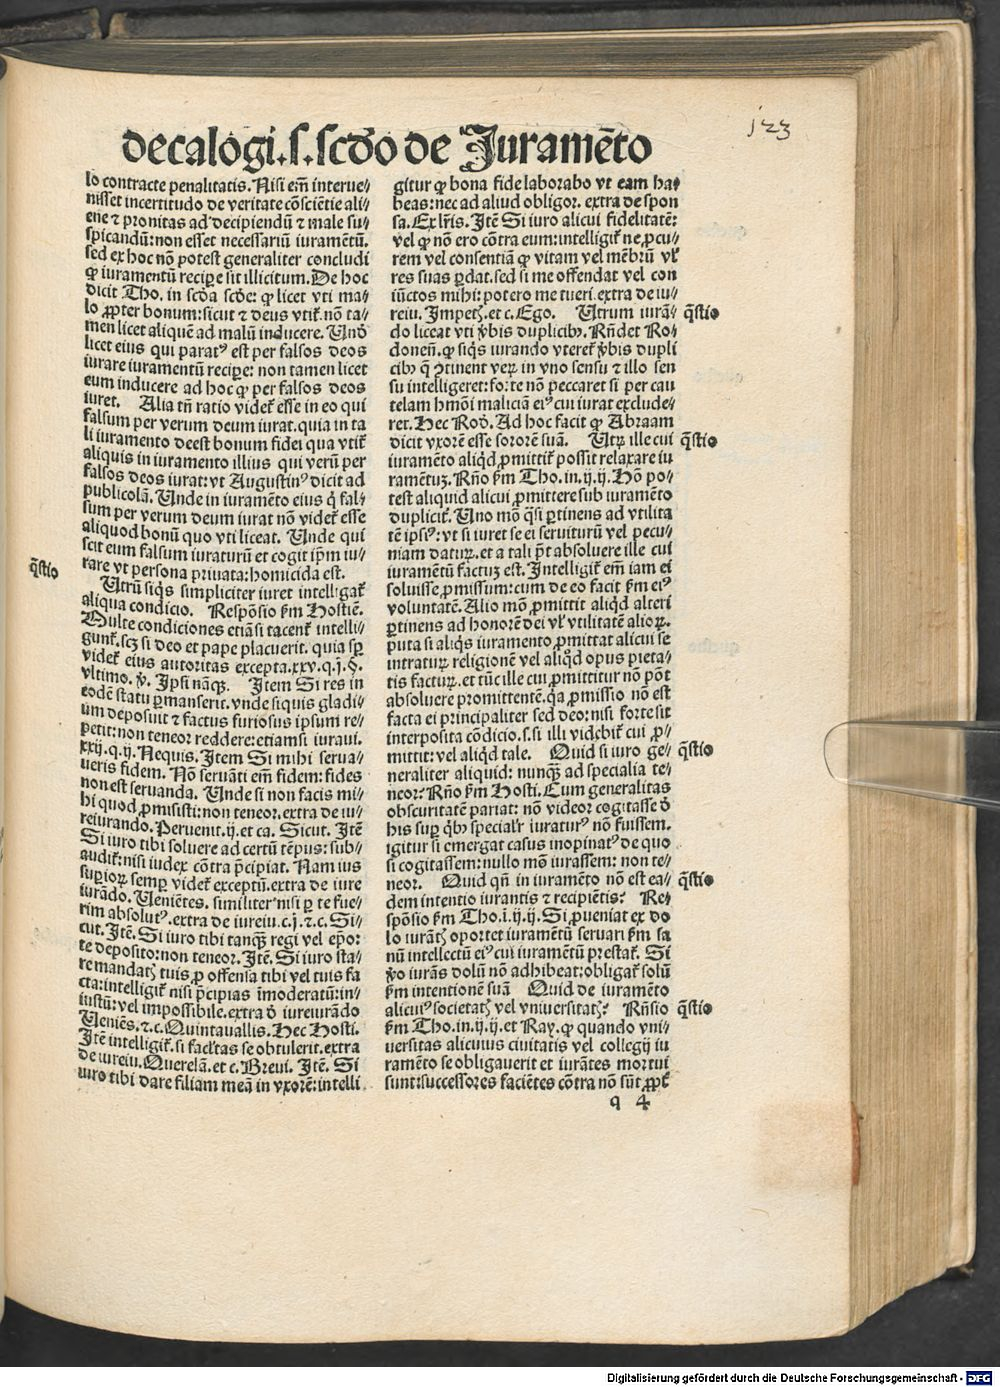 123
decalogi. s. scḋo de Iuramēto
lo contracte penalitatis. Nisi em̄ interue//
nisset incertitudo de veritate cōsciētie ali//
ene ⁊ pronitas ad decipiendū ⁊ male su//
spicandū: non esset necessariū iuramētū.
sed ex hoc nō potest generaliter concludi
ꝙ iuramentū recipe sit illicitum. De hoc
dicit Tho. in scḋa scḋe: ꝙ licet vti ma//
lo ꝓpter bonum: sicut ⁊ deus vtit̄. nō ta//
men licet aliquē ad malū inducere. Unḋ
licet eius qui paratꝰ est per falsos deos
iurare iuramentū recipe: non tamen licet
eum inducere ad hoc ꝙ per falsos deos
iuret. Alia tn̄ ratio videt̄ esse in eo qui
falsum per verum deum iurat. quia in ta
li iuramento deest bonum fidei qua vtit̄
aliquis in iuramento illius qui verū per
falsos deos iurat: vt Augustinꝰ dicit ad
publicolā. Unde in iuramēto eius q̇ fal//
sum per verum deum iurat nō videt̄ esse
aliquod bonū quo vti liceat. Unde qui
scit eum falsum iuraturū et cogit ip̄m iu//
rare vt persona priuata: homicida est.
q̄stio
Utrū siqs simpliciter iuret intelligat̄
aliqua condicio. Respōsio ẜm Hostiē.
Multe condiciones etiāsi tacent̄ intelli//
gunt̄. scꝫ si deo et pape placuerit. quia sp̄
videt̄ eius autoritas excepta. xxv. q. j. §.
vltimo. v̇. Ipsi nāqꝫ. Item Si res in
eodē statu ꝑmanserit. vnde siquis gladi//
um deposuit ⁊ factus furiosus ipsum re//
petit: non teneor reddere: etiamsi iuraui.
xxij. q. ij. Nequis. Item Si mihi serua//
ueris fidem. Nō seruāti em̄ fidem: fides
non est seruanda. Unde si non facis mi//
hi quod ꝓmisisti: non teneor. extra de iu//
reiurando. Peruenit. ij. et ca. Sicut. Itē
Si iuro tibi soluere ad certū tēpus: sub//
audit̄: nisi iudex cōtra p̄cipiat. Nam ius
supioꝝ semꝑ videt̄ exceptū. extra de iure
iurādo. Ueniētes. similiter nisi ꝑ te fue//
rim absolutꝰ. extra de iureiu. c. j. ⁊ c. Si//
cut. Itē. Si iuro tibi tanqꝫ regi vel ep̄o:
te deposito: non teneor. Itē. Si iuro sta//
re mandatꝭ tuis ꝓ offensa tibi vel tuis fa
cta: intelligit̄ nisi p̄cipias īmoderatū: in//
iustū: vel impossibile. extra ḋ iureiurādo
Ueniēs. ⁊ c. Quintauallis. Hec Hosti.
Itē intelligit̄. si facl̄tas se obtulerit. extra
de iureiu. Querelā. et c. Breui. Itē. Si
iuro tibi dare filiam meā in vxorē: intelli
gitur ꝙ bona fide laborabo vt eam ha//
beas: nec ad aliud obligor. extra de spon
sa. Ex lr̄is. Itē Si iuro alicui fidelitatē:
vel ꝙ nō ero cōtra eum: intelligit̄ ne ꝓcu//
rem vel consentiā ꝙ vitam vel mēbrū vl̄
res suas ꝑdat. sed si me offendat vel con
iūctos mihi: potero me tueri. extra de iu//
reiu. Impetꝭ. et c. Ego. Utrum iurā// q̄stio
do liceat vti v̇bis duplicibꝰ. Rn̄det Ro//
donen̄. ꝙ siqs iurando vteret̄ v̇bis dupli
cibꝰ q̄ ꝯtinent veꝝ in vno sensu ⁊ illo sen
su intelligeret: forte nō peccaret si per cau
telam hmōi maliciā eiꝰ cui iurat exclude//
ret. Hec Roḋ. Ad hoc facit ꝙ Abraam
dicit vxorē esse sororē suā. Utꝝ ille cui q̄stio
iuramēto aliqd ꝓmittit̄ possit relaxare iu
ramētuꝫ. Rn̄o ẜm Tho. in. ij. ij. Hō po//
test aliquid alicui ꝓmittere sub iuramēto
duplicit̄. Uno mō q̄si ꝑtinens ad vtilita
tē ip̄siꝰ: vt si iuret se ei seruiturū vel pecu//
niam daturꝝ. et a tali p̄t absoluere ille cui
iuramētū factuꝫ est. Intelligit̄ em̄ iam ei
soluisse ꝓmissum: cum de eo facit ẜm eiꝰ
voluntatē. Alio mō ꝓmittit aliqd alteri
ꝑtinens ad honorē dei vl̄ vtilitatē alioꝝ.
puta si aliqs iuramento ꝓmittat alicui se
intraturꝝ religionē vel aliqḋ opus pieta//
tis facturꝝ. et tūc ille cui ꝓmittitur nō pōt
absoluere promittentē. qa ꝓmissio nō est
facta ei principaliter sed deo: nisi forte sit
interposita cōdicio. s. si illi videbit̄ cui ꝓ//
mittit: vel aliqd tale. Quid si iuro ge// q̄stio
neraliter aliquid: nunqꝫ ad specialia te//
neor? Rn̄o ẜm Hosti. Cum generalitas
obscuritatē pariat: nō videor cogitasse ḋ
his suꝑ qbꝰ specialr̄ iuraturꝰ nō fuissem.
igitur si emergat casus inopinatꝰ de quo
si cogitassem: nullo mō iurassem: non te//
neor. Quid qn̄ in iuramēto nō est ea// q̄stio
dem intentio iurantis ⁊ recipiētis? Re//
spōsio ẜm Tho. i. ij. ij. Si ꝓueniat ex do
lo iurātꝭ oportet iuramētū seruari ẜm sa
nū intellectū eiꝰ cui iuramētū prestat̄. Si
v̇o iurās dolū nō adhibeat: obligat̄ solū
ẜm intentionē suā Quid de iuramēto
alicuiꝰ societatꝭ vel vniuersitatꝭ? Rn̄sio q̄stio
ẜm Tho. in. ij. ij. et Ray. ꝙ quando vni//
uersitas alicuius ciuitatis vel collegij iu
ramēto se obligauerit et iurātes mortui
sunt: successores faciētes cōtra nō sūt ꝓpt̄
q 4
Digitalisierung gefördert durch die Deutsche Forschungsgemeinschaft - DFG